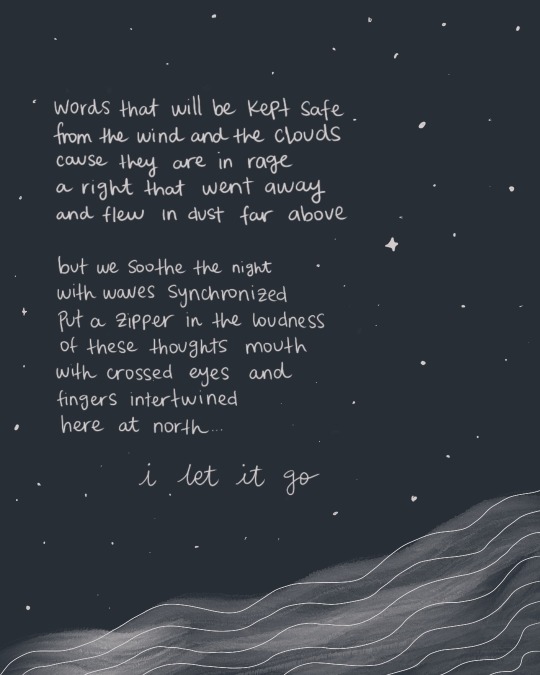 words that will be kept safe
from the wind and the clouds
cause they are in rage
a right that went away
and flew in dust far above
but we soothe the night
with waves synchronized
Put a zipper in the loudness
of these thoughts mouth
with crossed eyes and
fingers intertwined
here at north...
i let it go